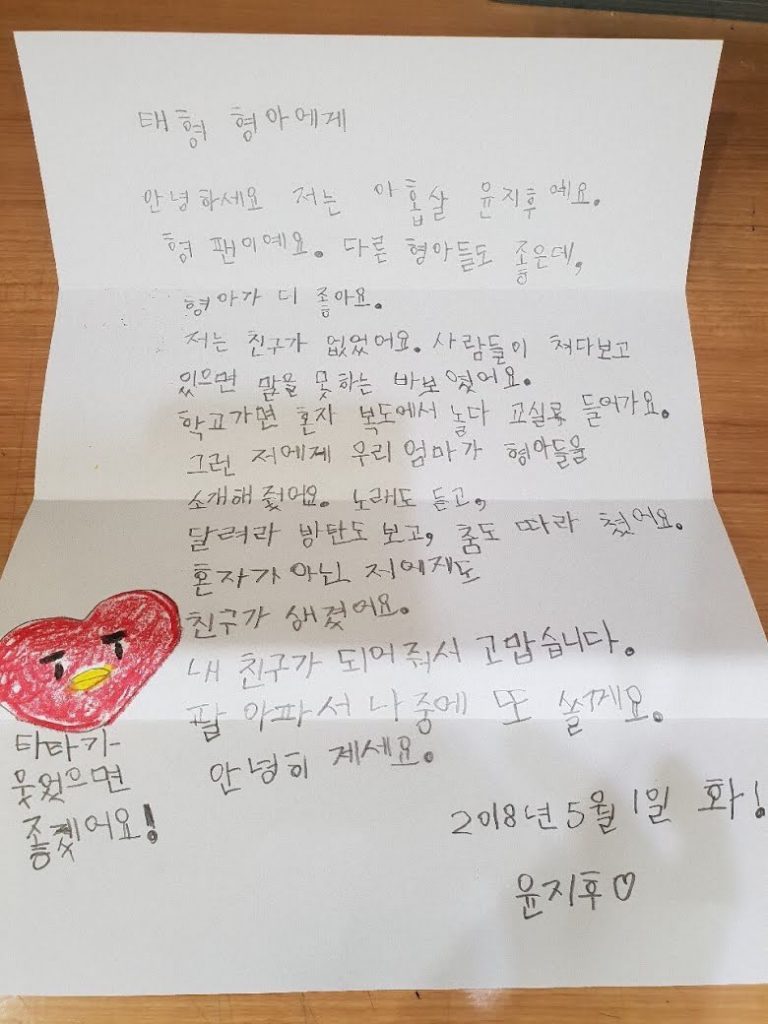 태형 형아에게
안녕하세요 저는 아홉살 윤지후예요.
형 팬이예요. 다른 형아들도 좋은데,
형아가 더 좋아요.
저는 친구가 없었어요. 사람들이 쳐다보고
있으면 말을 못하는 바보였어요.
학교가면 혼자 복도에서 놀다 교실로 들어가요.
그런 저에게 우리엄마가 형아들을
소개해 줬어요. 노래도 듣고,
달려라 방탄도 보고, 춤도 따라 췄어요.
혼자가 아닌 저에게도
친구가 생겼어요.
내 친구가 되어줘서 고맙습니다.
팔 아파서 나중에 또 쓸께요.
안녕히 계세요.
타타가
웃었으면
좋겠어요!
2018년 5월 1일 화!
윤지후♡